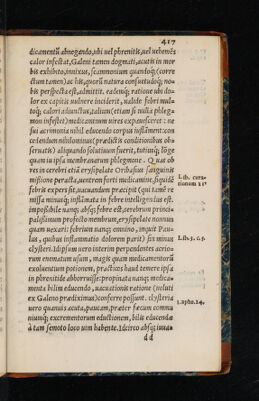 417
dicamentũ abnegando, ubi uel phrenitis, uel uehemẽs
calor infestat, Galeni tamen dogmati, acutis in mor
bis exhibito, innixus, scammonium quandoq; (corre
ctum tamen) ac his, quorũ natura consuetudoq; no-
bis perspecta est, admittit. eademq; ratione ubi do-
lor ex capitis uulnere inciderit, ualide febri mul-
toq; calori adiunctus, alium (etiam si nulla phleg-
mon infestet) medicantium uires expauesceret: ne
sui acrimonia nihil educendo corpus inflāment: con
ciendum nihilominus (prædictis conditionibus ob-
seruatis) aliquando solutium fuerit, tutiusq; lõge
quam in ipsa membranarum phlegmone. Quas ob
res in cerebri etiã erysipelate Oribasius sanguinis
missione peracta, uentrem forti medicamine, siquidẽ
febris expers sit, uacuandum præcipit (qui tamẽ re
missa minusq; inflāmata in febre intelligendus est.
impossibile nanq; absq; febre est, cerebrum princi-
palissimum profecto membrum, erysipelate nonnun
quam uexari: febrium nanq; omnino, inquit Pau-
lus, quibus inflammatio dolorem parit) sin minus
clysteri. Id ipsum uero interim perpendens acrio-
rum enematum usum, magis quam medicamentorũ
exoluentium potionem, practicos haud temere ipsa
in phrenitide abhorruisse: propinata nanq; medica-
menta bilim educendo, uacuationis ratione (ueluti
ex Galeno prædiximus) conferre possunt. clysteria
uero quamuis acuta, paucam, præter fæcum commu
niumq; excrementorum eductionem, bilis educenda
à tam semoto loco uim habente. Idcirco absq; iuua-
dd
1.lib. cura-
tionum 21
Lib.3. c.5.
1.apho.24.